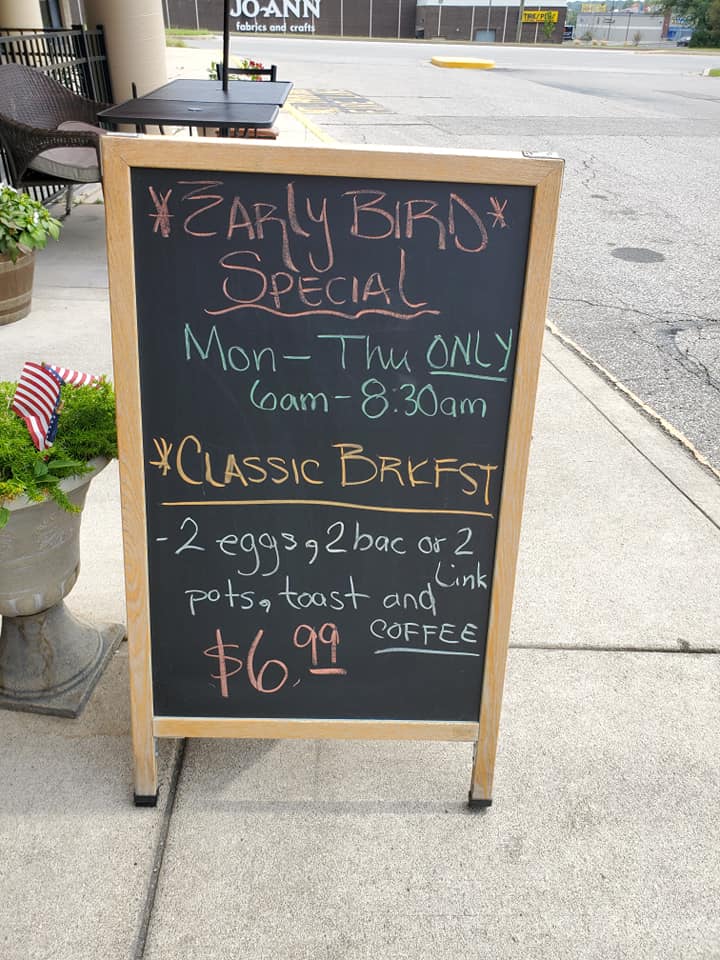 JO-ANN
fabrics and crafts
*EARLY BIRD*
SPECIAL
Mon-Thu ONLY
6am-8:30am
*CLASSIC BRKFST
-2 eggs, 2 bac or 2
Link
pots, toast and
COFFEE
$6.99